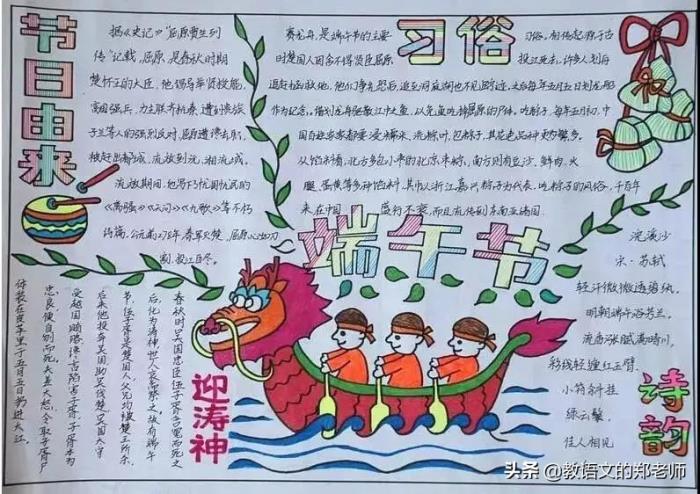 节日由来
据《史记》"屈原贾生列
传"记载,屈原,是春秋时期
楚怀王的大臣,他倡导举贤授能,
富国强兵,力主联齐抗秦,遭到贵族
子兰等人的强烈反对,屈原遭馋去职,
被赶出都城,流放到沅、湘流域。
流放期间,他写下忧国忧民的
《离骚》《天问》《九歌》等不朽
诗篇,公元前278年,秦军
屈原心如刀
割,投江自尽。
习俗
赛龙舟,是端午节的主要
习俗。
时楚国人因舍不得贤臣屈原
投江死去,许多人划船
追赶拯救他,他们争先恐后,追至洞庭湖也不见踪迹,
每年五月五日划龙舟
作为纪念。借划龙舟驱散江中之鱼,以免鱼吃掉屈原的尸体。吃粽子,每年五月初,中
国百姓家家都要浸糯米、洗粽叶、包粽子,其花色品种更为繁多。
从馅料看,北方多包小枣的北京枣粽,南方则有豆沙、鲜肉、火
腿、蛋黄等多种馅料,其中以浙江嘉兴粽子为代表。吃粽子的风俗,千百年
来,在中国
盛行不衰,而且流传到东南亚诸国
端午节
浣溪沙
宋·苏轼
轻汗微微透碧纨,
明朝端午浴芳兰。
流香涨腻满晴川。
彩线轻缠红玉臂,
小符斜挂
绿云鬟。
佳人相见
诗韵
迎涛神
春秋时吴国忠臣伍子胥含冤而死之
后,化为涛神,世人哀而祭之,故有端午
节。伍子胥是楚国人,父兄均被楚王所杀,
后来他投奔吴国,助吴伐楚。吴国大宰
受越国贿赂,谗言陷害子胥,子胥本为
忠良,便自刎而死,夫差大怒,令取子胥尸
体装在皮革里于五月五日扔进大江。
头条 @教语文的郑老师